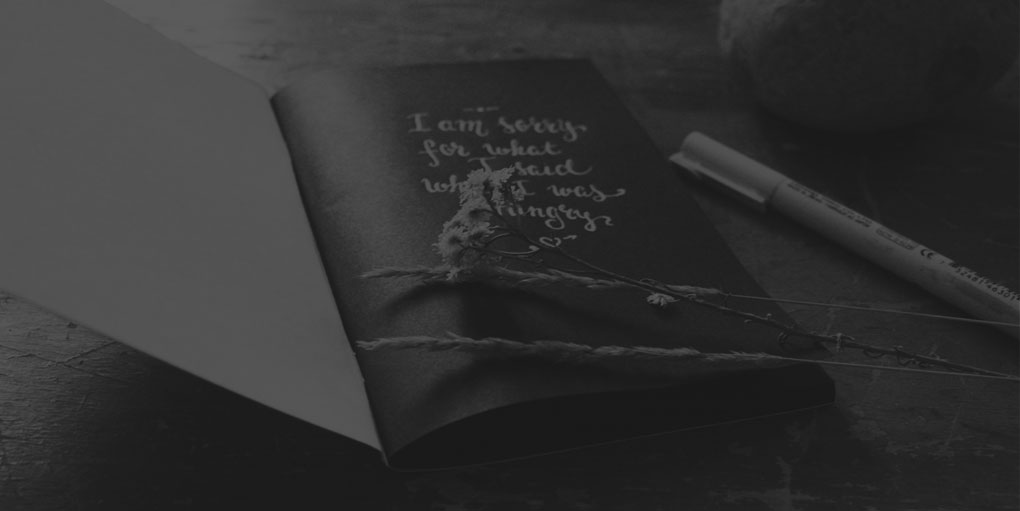 I am sorry
for what
I said
when I was
hungry.
CE